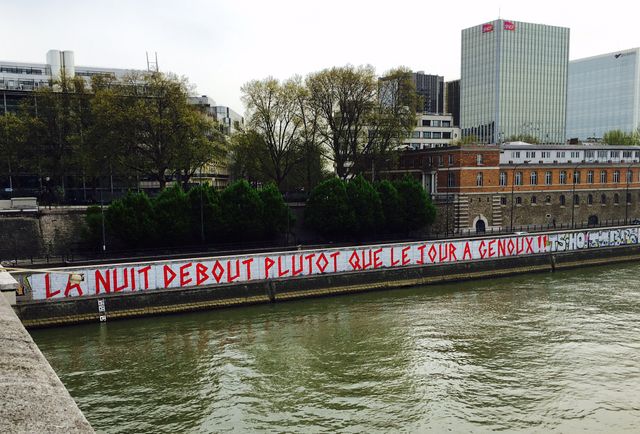 SNCF SNCF
LA NUIT DEBOUT PLUTOT QUE LE JOUR A GENOUX !!